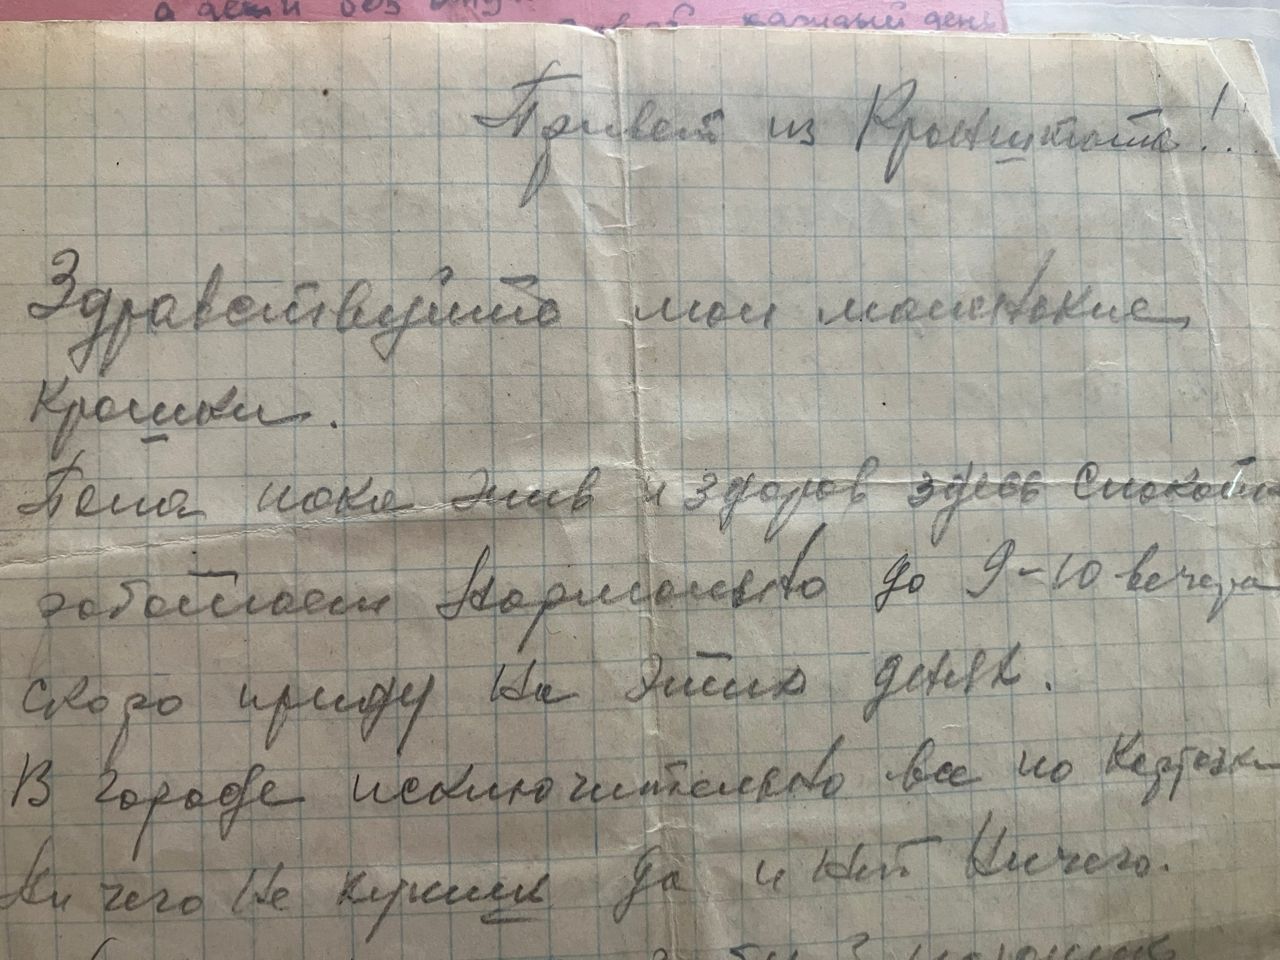 а дети без
каждый день
Привет из Кронштата!!
Здравствуйте мои маленькие
крошки.
Папа пока жив и здоров здесь спокойн
работаем нормально до 9-10 вечера
скоро приду на этих днях.
В городе исключительно все по карточки
Ни чего не купишь да и нет ничего.